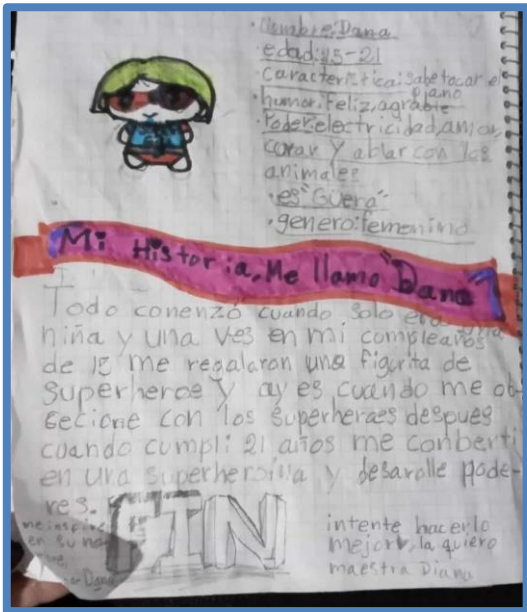 · Nombre: Dana
· edad: 15-21
· Característica: sabe tocar el
piano
· humor: Feliz, agrable
· Poder: electricidad, amor,
curar y ablar con los
animales
· es "Güera"
· genero: femenino
Mi Historia, Me llamo "Dana"
Todo conenzó cuando solo era una
niña y una ves en mi compleaños
de 15 me regalaron una figurita de
superheroe y ay es cuando me ob-
secione con los superheroes despues
cuando cumpli 21 años me converti
en una superheroina y desarolle pode-
res.
FIN
me inspire
en su no
intente hacerlo
mejor, la quiero
maestra Diana